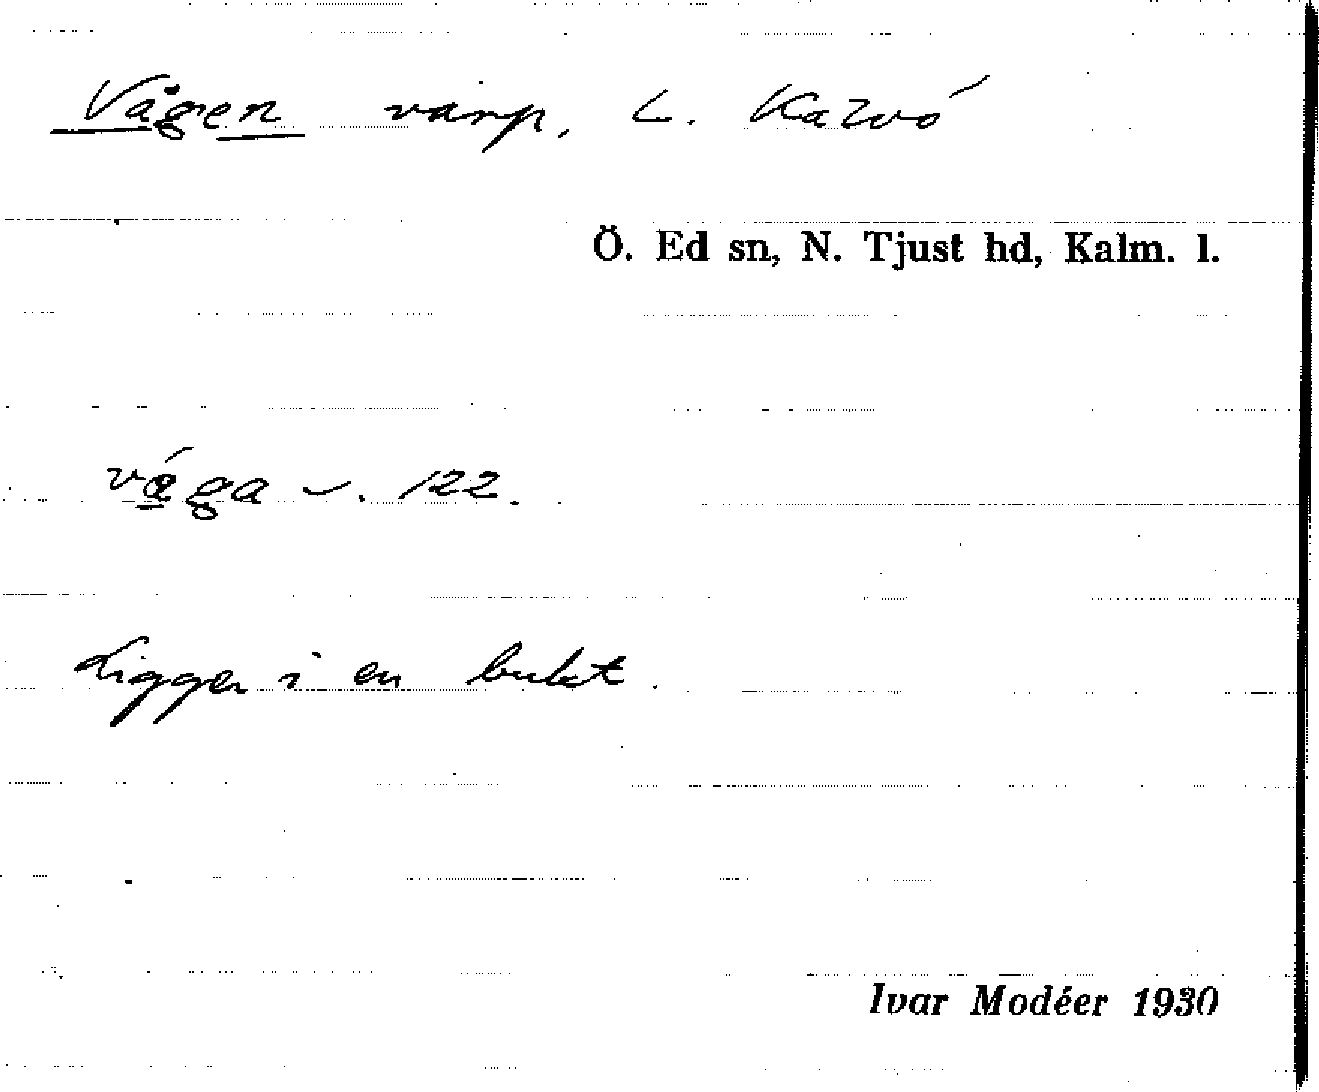 Vågen varp, L. Kalvö
Ö. Ed sn, N. Tjust hd, Kalm. l.
våga v. 122.
Ligger i en bukt.
Ivar Modéer 1930